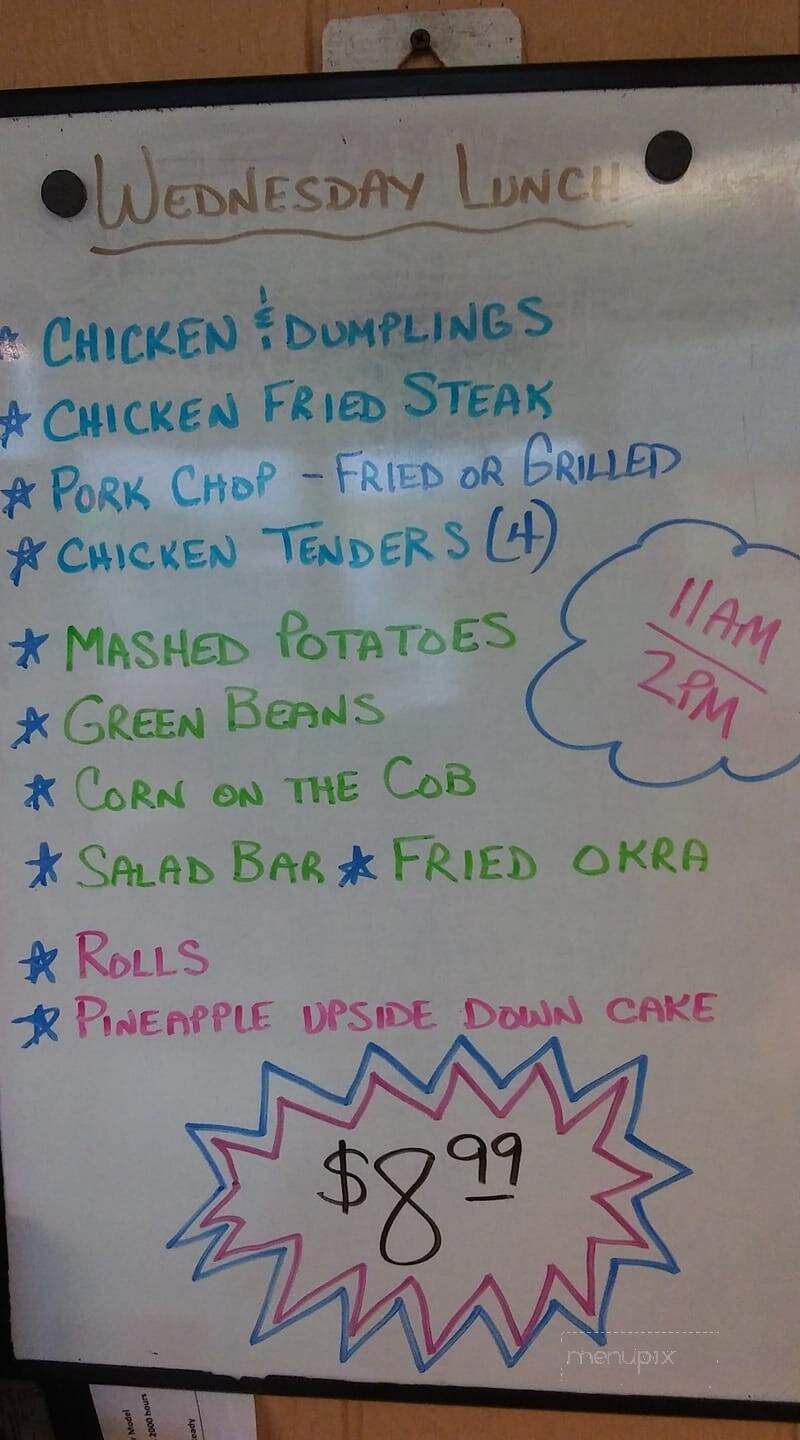 WEDNESDAY LUNCH
CHICKEN & DUMPLINGS
CHICKEN FRIED STEAK
PORK CHOP - FRIED OR GRILLED
CHICKEN TENDERS (4)
11AM
2PM
MASHED POTATOES
GREEN BEANS
CORN ON THE COB
SALAD BAR ★ FRIED OKRA
ROLLS
PINEAPPLE UPSIDE DOWN CAKE
$8.99
menupix
Model
2000 hours